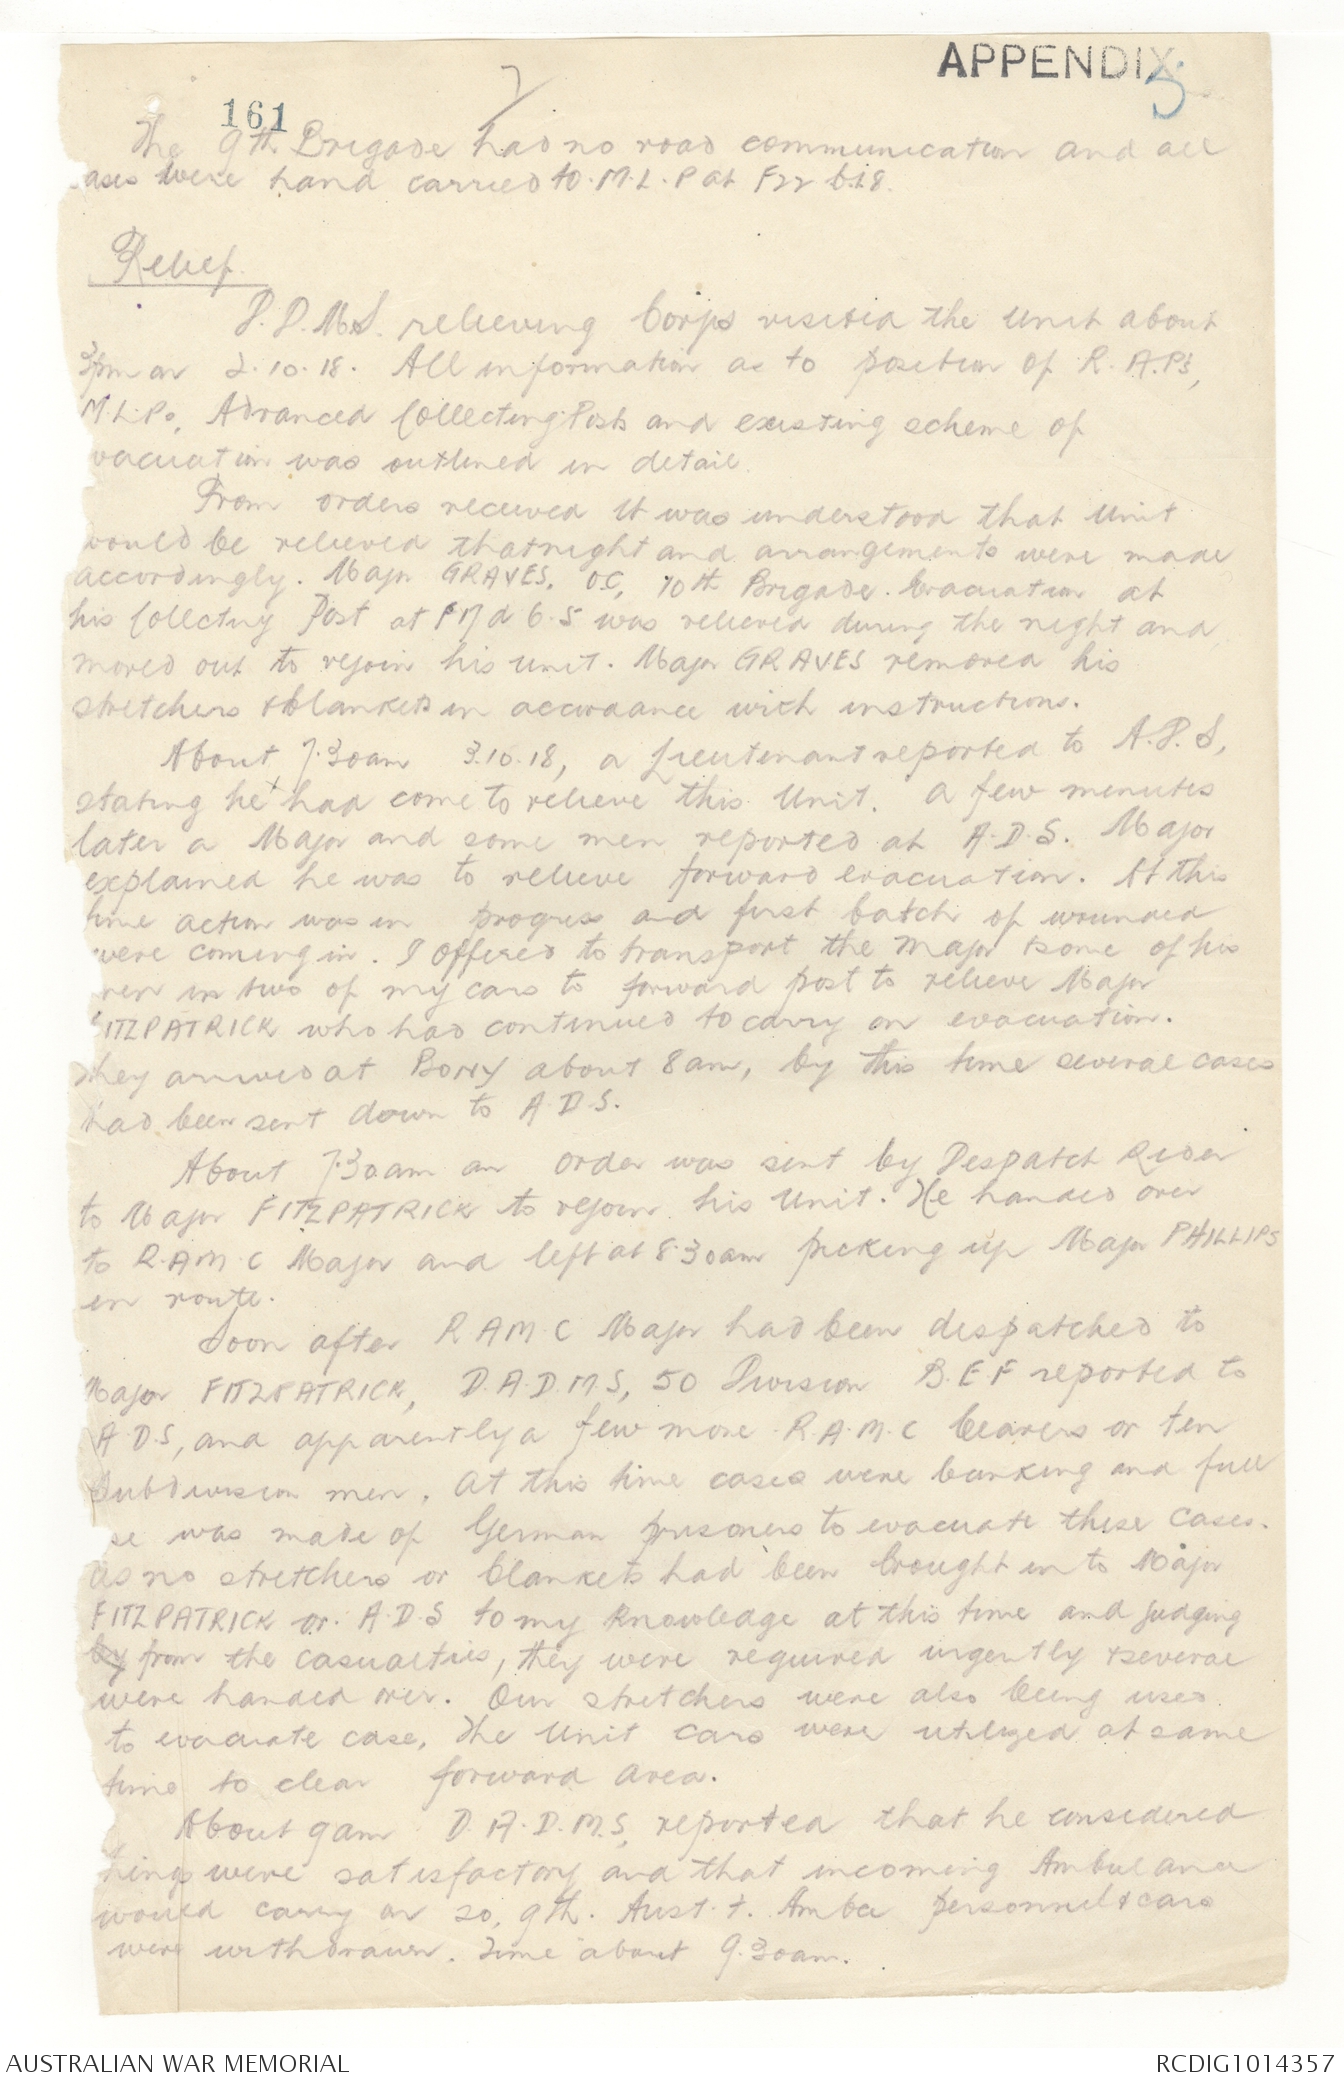 APPENDIX 5
7
161
The 9th Brigade had no road communication and all
cases were hand carried to M.L.P at F22 b.1.8.
Relief.
D.D.M.S. relieving Corps visited the Unit about
3pm on 2.10.18. All information as to position of R.A.Ps,
M.L.Ps, Advanced Collecting Posts and existing scheme of
vacuation was outlined in detail.
From orders received it was understood that Unit
would be relieved that night and arrangements were made
accordingly. Major GRAVES, OC, 10th Brigade. Evacuation at
his Collecting Post at F17d 6.5 was relieved during the night and
moved out to rejoin his unit. Major GRAVES removed his
stretchers & blankets in accordance with instructions.
About 7.30am 3.10.18, a Lieutenant reported to A.D.S,
stating he had come to relieve this Unit. A few minutes
later a Major and some men reported at A.D.S. Major
explained he was to relieve forward evacuation. At this
time action was in progress and first batch of wounded
were coming in. I offered to transport the Major & some of his
men in two of my cars to forward post to relieve Major
FITZPATRICK who had continued to carry on evacuation.
They arrived at BONY about 8am, by this time several cases
had been sent down to A.D.S.
About 7.30am an order was sent by Despatch Rider
to Major FITZPATRICK to rejoin his Unit. He handed over
to R.A.M.C Major and left at 8.30am picking up Major PHILLIPS
en route.
Soon after R.A.M.C Major had been despatched to
Major FITZPATRICK, D.A.D.M.S, 50 Division B.E.F reported to
A.D.S, and apparently a few more R.A.M.C bearers or ten
Subdivision men. At this time cases were banking and full
se was made of German prisoners to evacuate these cases.
As no stretchers or blankets had been brought in to Major
FITZPATRICK or A.D.S to my knowledge at this time and judging
by from the casualties, they were required urgently & several
were handed over. Our stretchers were also being used
to evacuate case, The Unit cars were utilized at same
time to clear forward area.
About 9am D.A.D.M.S, reported that he considered
hings were satisfactory and that incoming Ambulance
would carry on so, 9th. Aust. f. Ambce personnel & cars
were withdrawn. Time about 9.30am.
AUSTRALIAN WAR MEMORIAL
RCDIG1014357